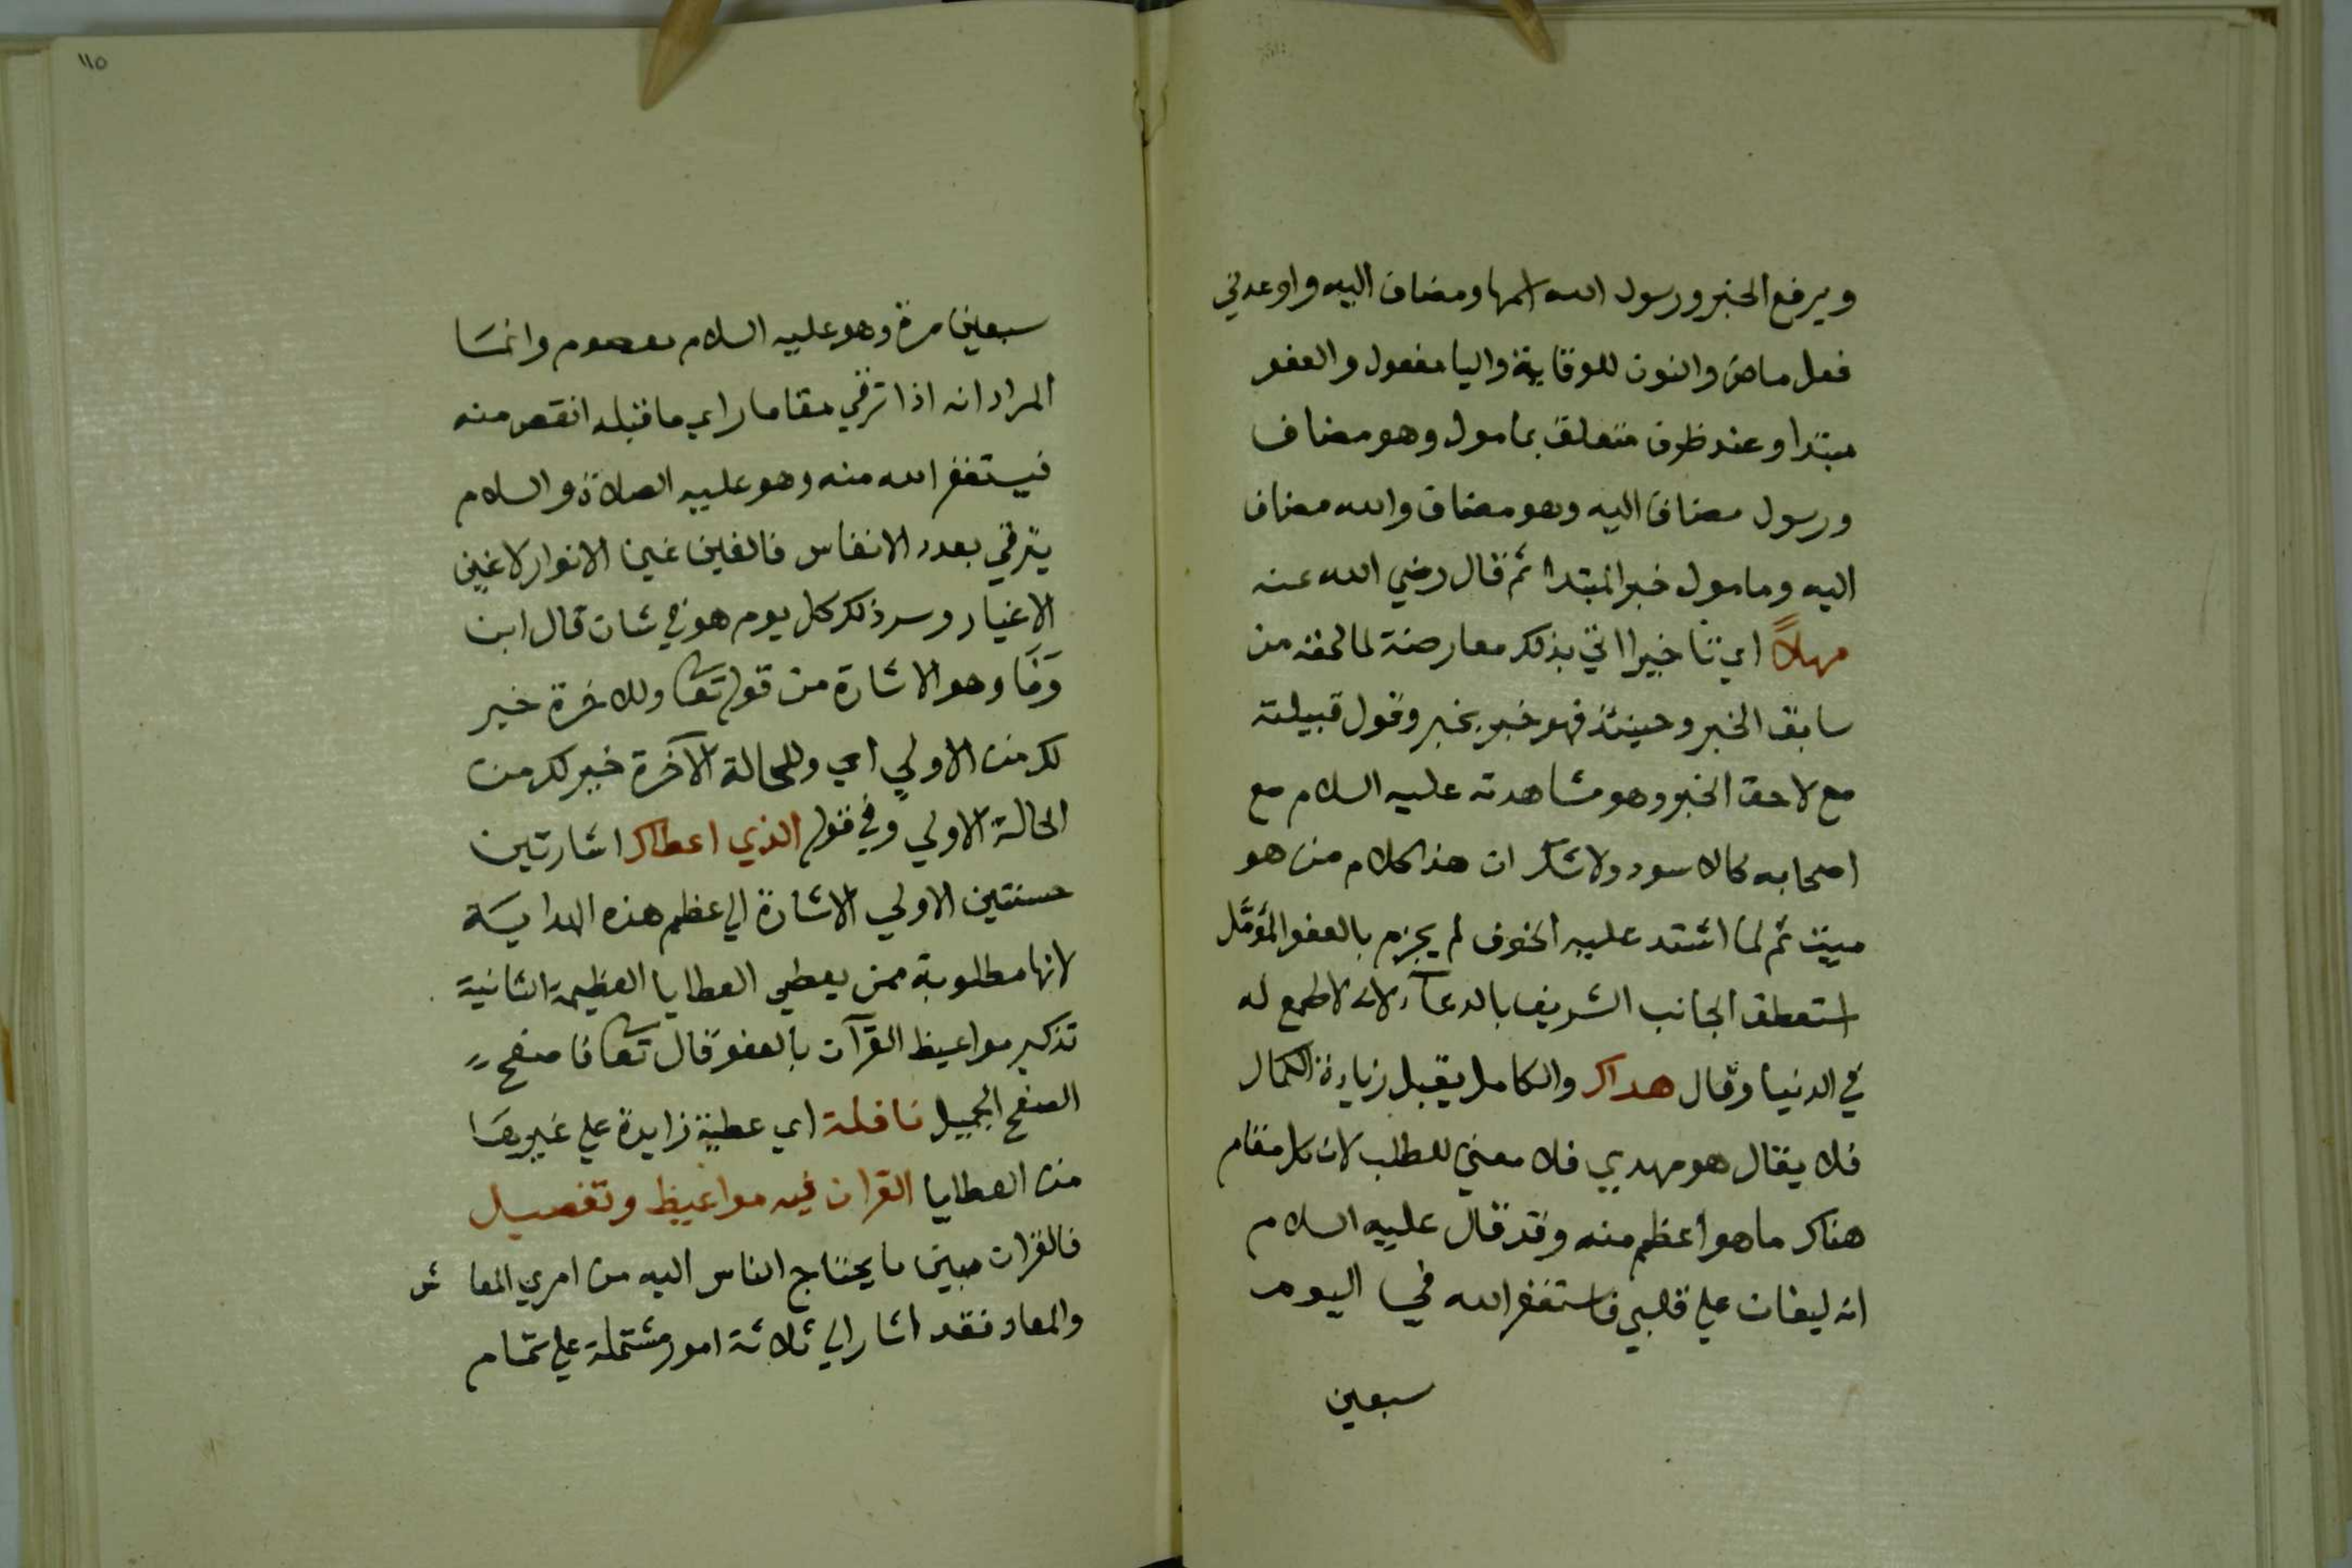 ويرفع الخبر ورسول الله اسمها ومضاف اليه واوعدني
فعل ماض والنون للوقاية واليا مفعول والعفو
مبتدا وعند ظرف متعلق بمامول وهو مضاف
ورسول مضاف اليه وهو مضاف والله مضاف
اليه ومامول خبر المبتدا ثم قال رضي الله عنه
مهلاً اي تاخيرا اتي بذلك معارضة لما لحقه من
سابق الخبر وحينئذ فهو خبر بخبر وقول قبيلته
مع لاحق الخبر وهو مشاهدته عليه السلام مع
اصحابه كالاسود ولا شك ان هذا الكلام من هو
ميت ثم لما اشتد عليه الخوف لم يجزم بالعفو المؤمَّل
استعطف الجانب الشريف بالدعآء لانه لا طمع له
في الدنيا وقال هداك والكامل يقبل زيادة الكمال
فلا يقال هو مهدي فلا معني للطلب لان كل مقام
هناك ما هو اعظم منه وقد قال عليه السلام
انه ليغان علي قلبي فاستغفر الله في اليوم
سبعين
١١٥
سبعين مرة وهو عليه السلام معصوم وانما
المراد انه اذا ترقي مقاما راي ما قبله انقص منه
فيستغفر الله منه وهو عليه الصلاة والسلام
يترقي بعدد الانفاس فالغين غين الانوار لا غين
الاغيار وسر ذلك كل يوم هو في شان قال ابن
وَفَا وهو الاشارة من قوله تعا وللاخرة خير
لك من الاولي اي وللحالة الآخرة خير لك من
الحالة الاولي وفي قوله الذي اعطاك اشارتين
حسنتين الاولي الاشارة الي عظم هذه الهداية
لانها مطلوبة ممن يعطي العطايا العظيمة الثانية
تذكير مواعيظ القرآن بالعفو قال تعا فاصفح
الصفح الجميل نافلة اي عطية زايدة علي غيرها
من العطايا القران فيه مواعيظ وتفصيل
فالقران مبين ما يحتاج الناس اليه من امري المعاش
والمعاد فقد اشار الي ثلاثة امور مشتملة علي تمام